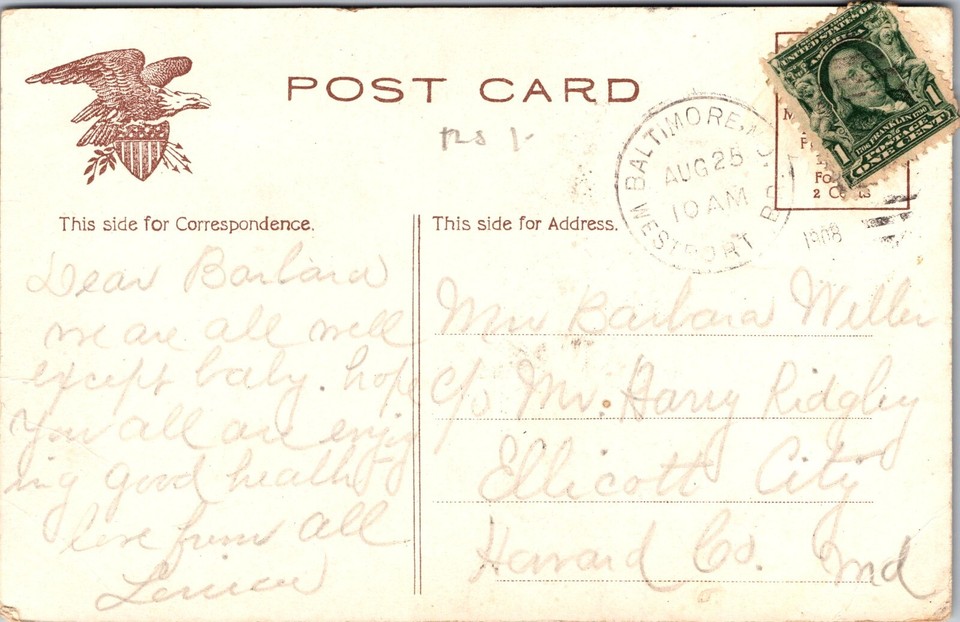 POST CARD
BALTIMORE, MD.
AUG 25
10 AM
WESTPORT
1908
UNITED STATES OF
AMERICA
FRANKLIN
1 1
ONE CENT
2 Cents
This side for Correspondence.
Dear Barbara
we are all well
except baby. hope
you all are enjoy
ing good health
love from all
This side for Address.
Barbara Weller
c/o Mr. Harry Ridgley
Ellicott City
Howard Co. Md